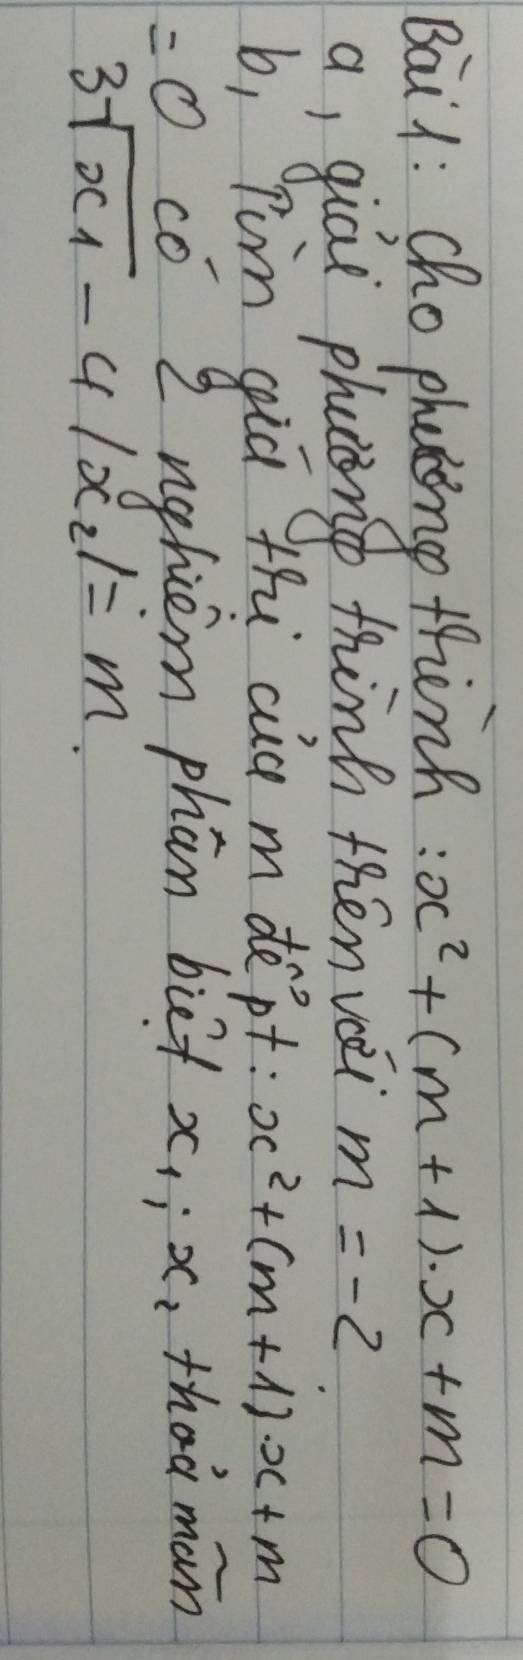 Bài 1: Cho phương trình : x² + (m + 1).x + m = 0
a, giải phương trình trên với m = -2
b, Tìm giá trị của m để pt: x² + (m + 1).x + m
= 0 có 2 nghiệm phân biệt x₁; x₂ thoả mãn
3√x₁ - 4|x₂| = m.